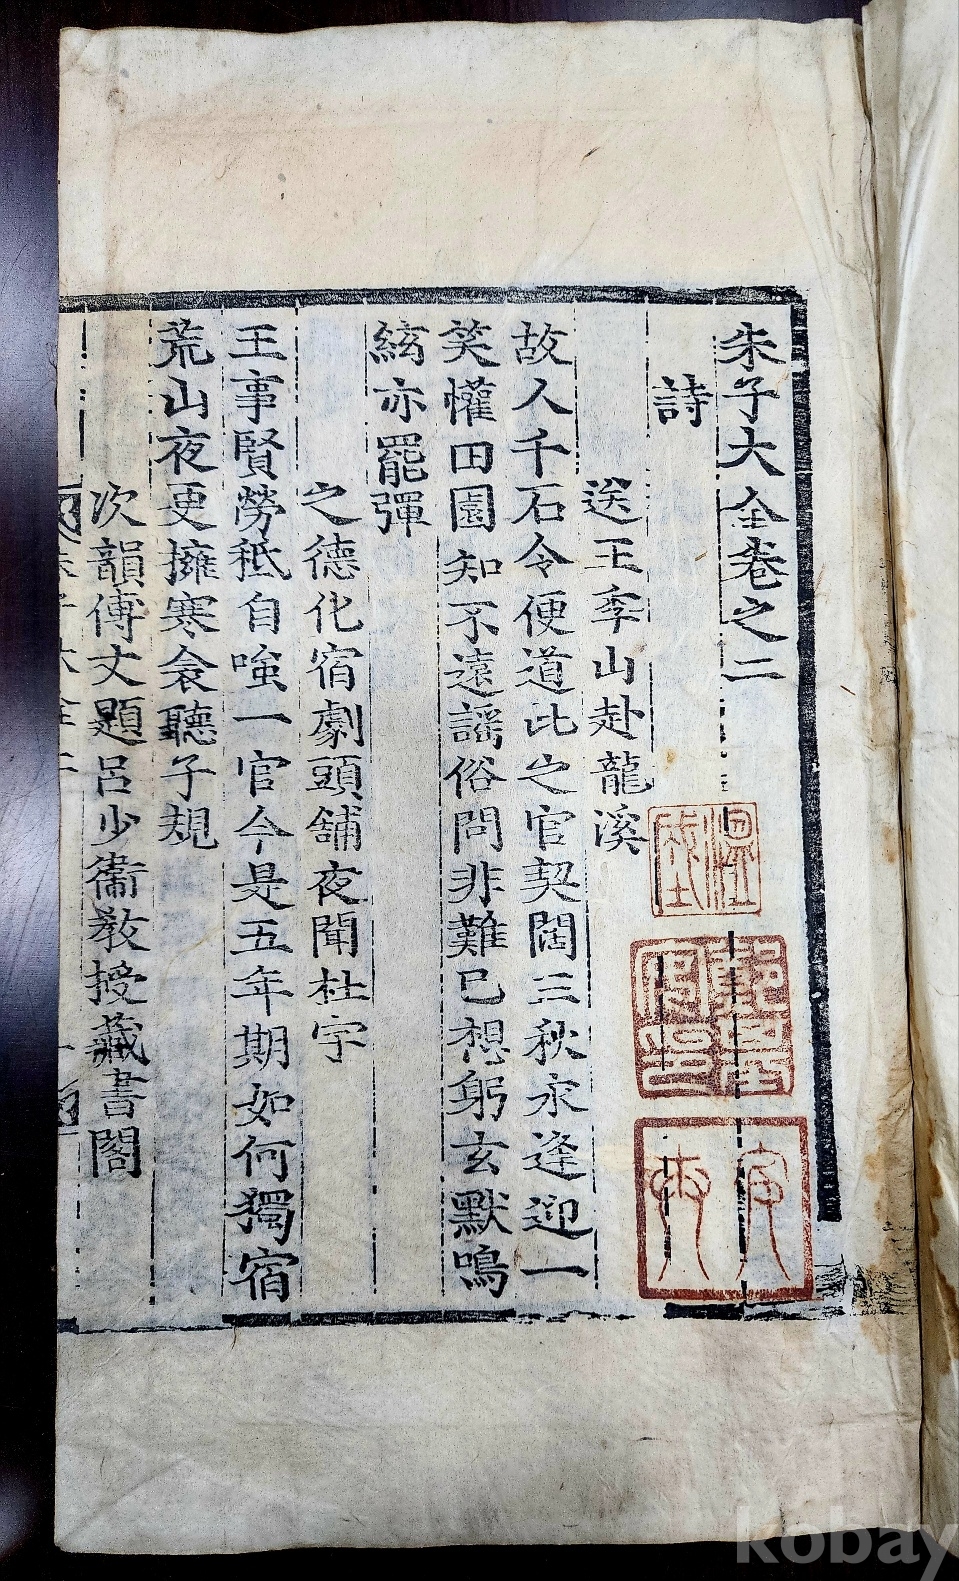 朱子大全卷之二
詩
送王季山赴龍溪
故人千石令便道此之官契闊三秋永逢迎一
笑懽田園知不遠謡俗問非難已想躬玄默鳴
絃亦罷彈
之德化宿劇頭舖夜聞杜宇
王事賢勞秪自嗤一官今是五年期如何獨宿
荒山夜更擁寒衾聽子規
次韻傅丈題呂少衞教授藏書閣
kobay